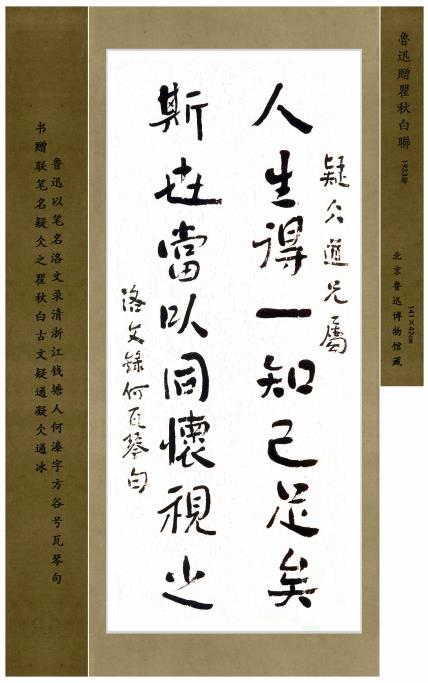 魯迅贈瞿秋白聯 1933年
北京魯迅博物馆藏 141×42cm
疑仌道兄屬
人生得一知己足矣
斯世當以同懷視之
洛文錄何瓦琴句
鲁迅以笔名洛文录清浙江钱塘人何溱字方谷号瓦琴句
书赠联笔名疑仌之瞿秋白古文疑通凝仌通冰